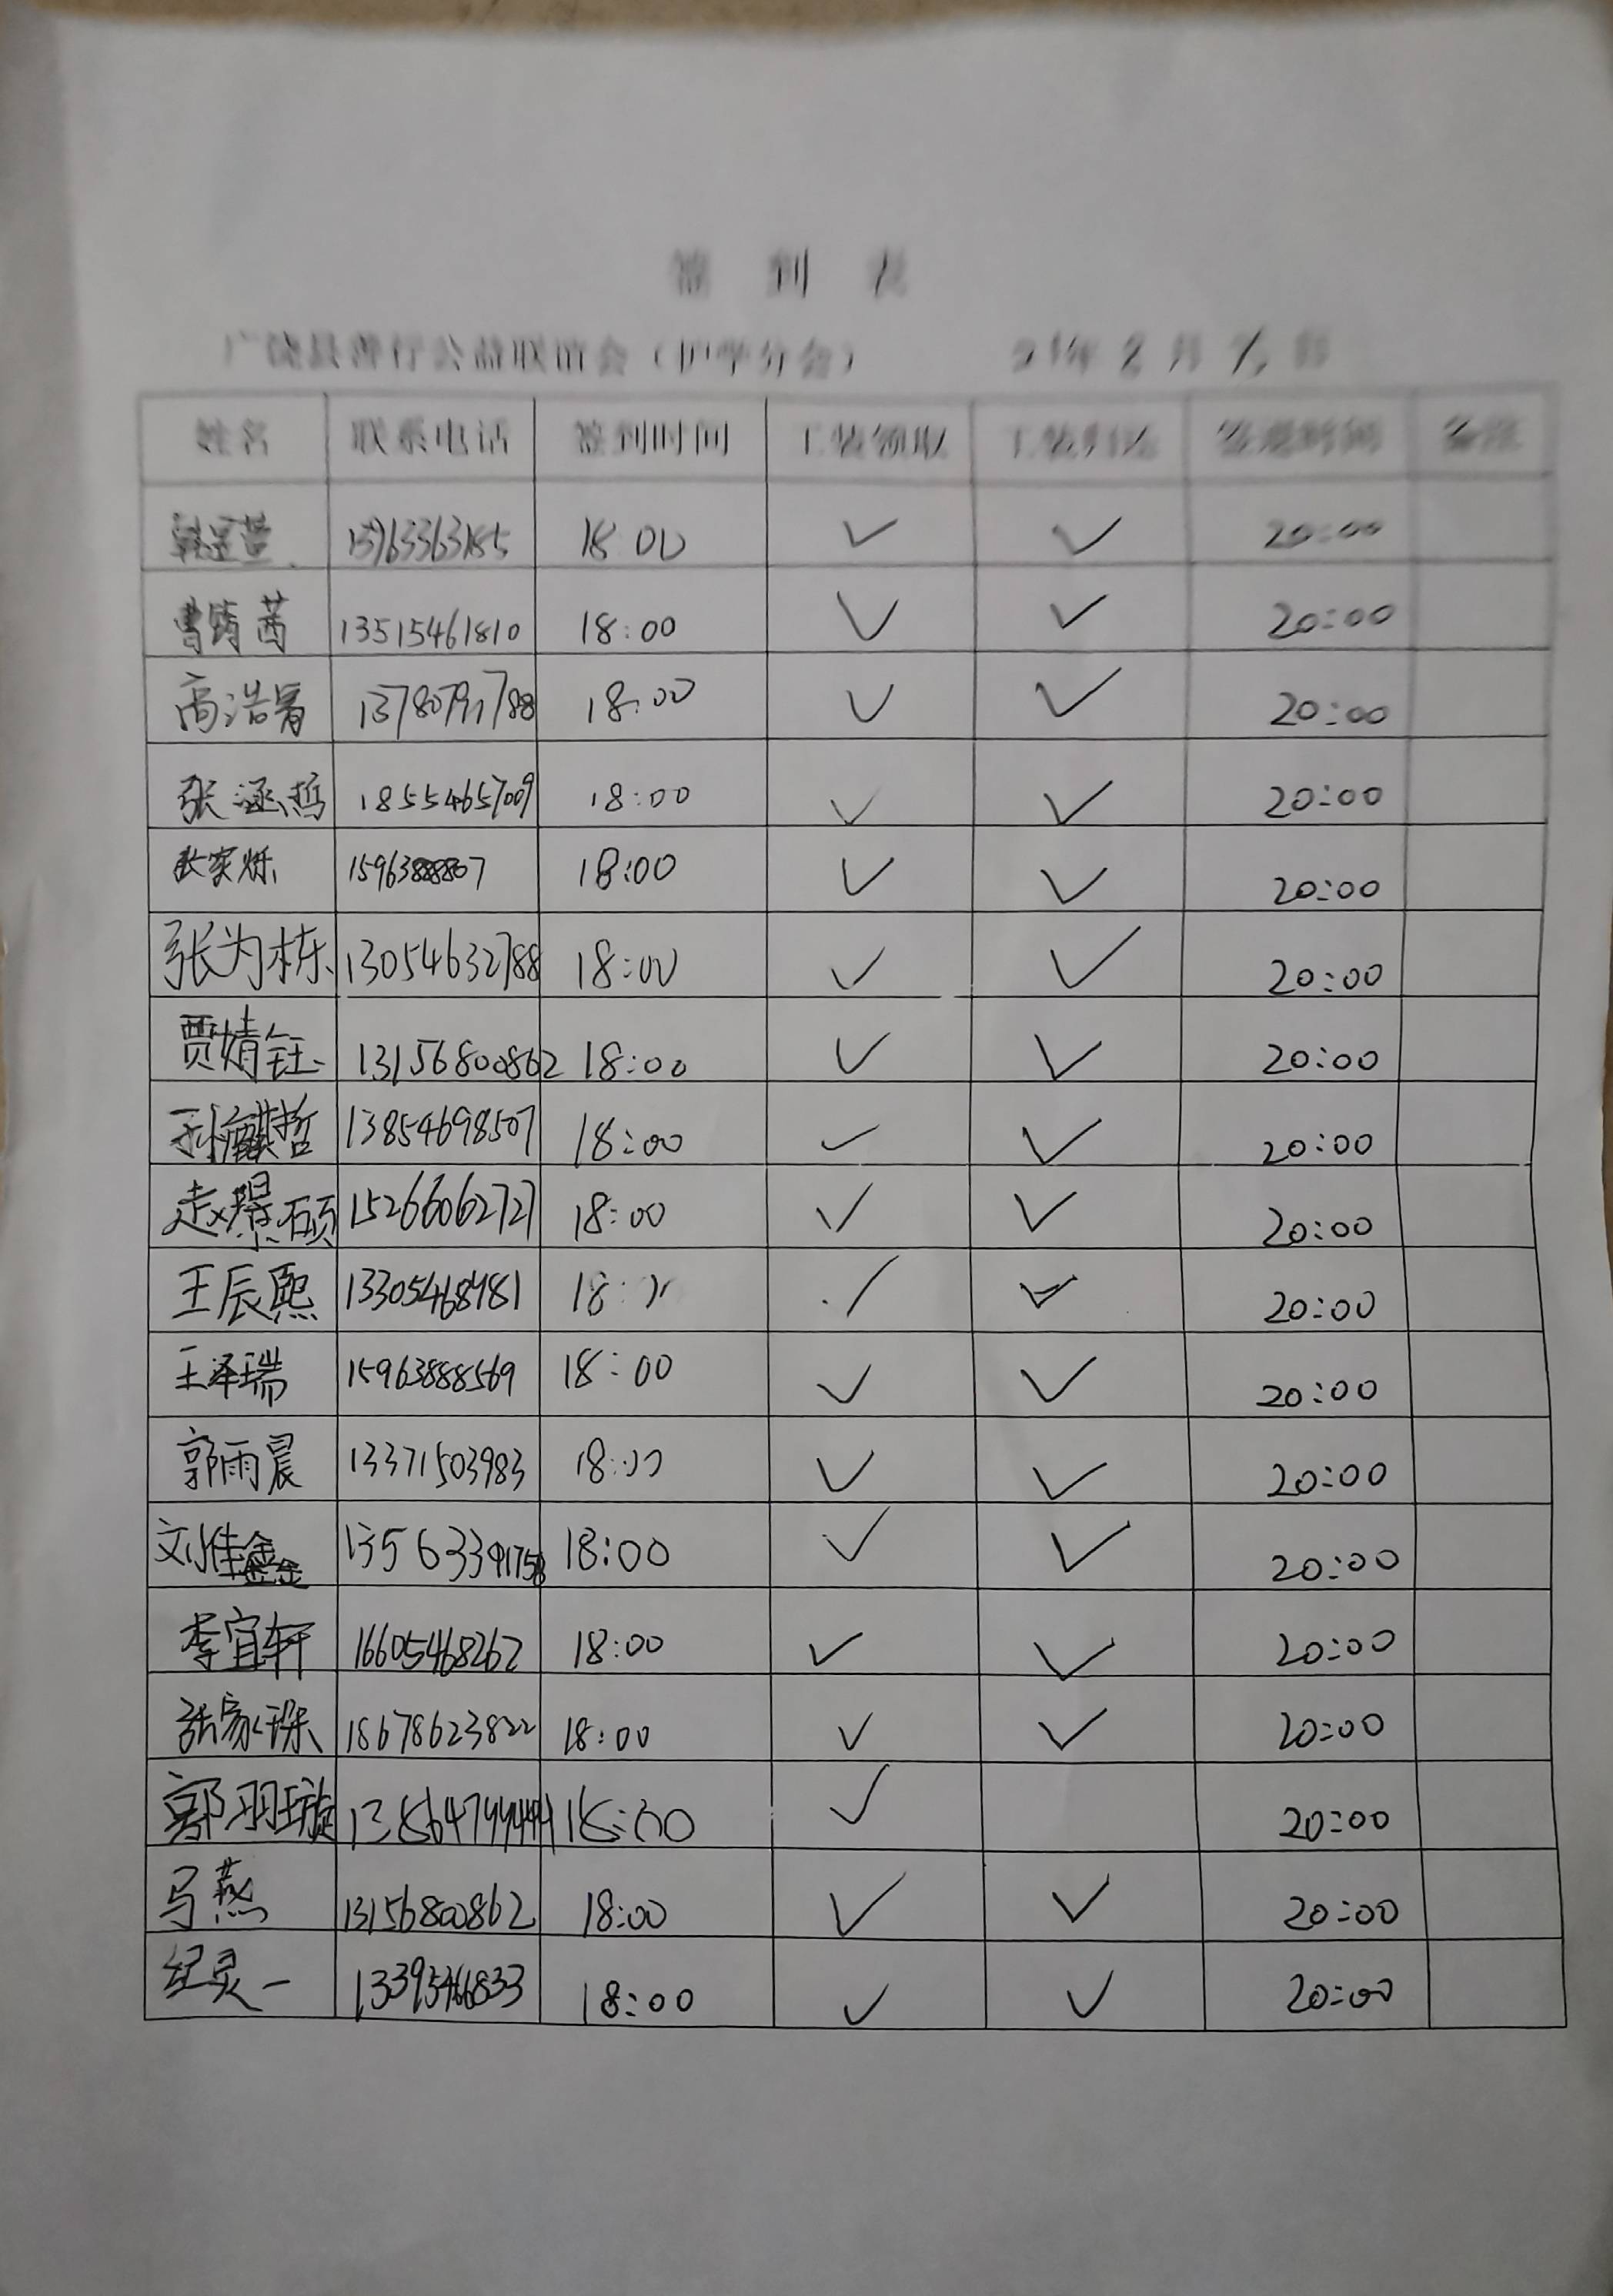 签 到 表
广饶县善行公益联谊会（护学分会） 21年8月7日
姓名 联系电话 签到时间 工装领取 工装归还 签退时间 备注
18:00 ✓ ✓ 20:00
曹 茜 13515461810 18:00 ✓ ✓ 20:00
高浩 18:00 ✓ ✓ 20:00
张涵哲 18554657009 18:00 ✓ ✓ 20:00
张家烁 18:00 ✓ ✓ 20:00
张为栋 13054632788 18:00 ✓ ✓ 20:00
贾婧钰 13156800862 18:00 ✓ ✓ 20:00
孙麒哲 13854698507 18:00 ✓ ✓ 20:00
赵璟硕 15266062727 18:00 ✓ ✓ 20:00
王辰熙 13305468481 18: ✓ ✓ 20:00
王泽瑞 15963888569 18:00 ✓ ✓ 20:00
郭雨晨 13371503983 18:00 ✓ ✓ 20:00
刘佳鑫 18:00 ✓ ✓ 20:00
李宜轩 16605468262 18:00 ✓ ✓ 20:00
张家珠 18678623822 18:00 ✓ ✓ 20:00
郭羽璇 18:00 ✓ 20:00
马燕 13156800862 18:00 ✓ ✓ 20:00
纪灵一 13395466833 18:00 ✓ ✓ 20:00